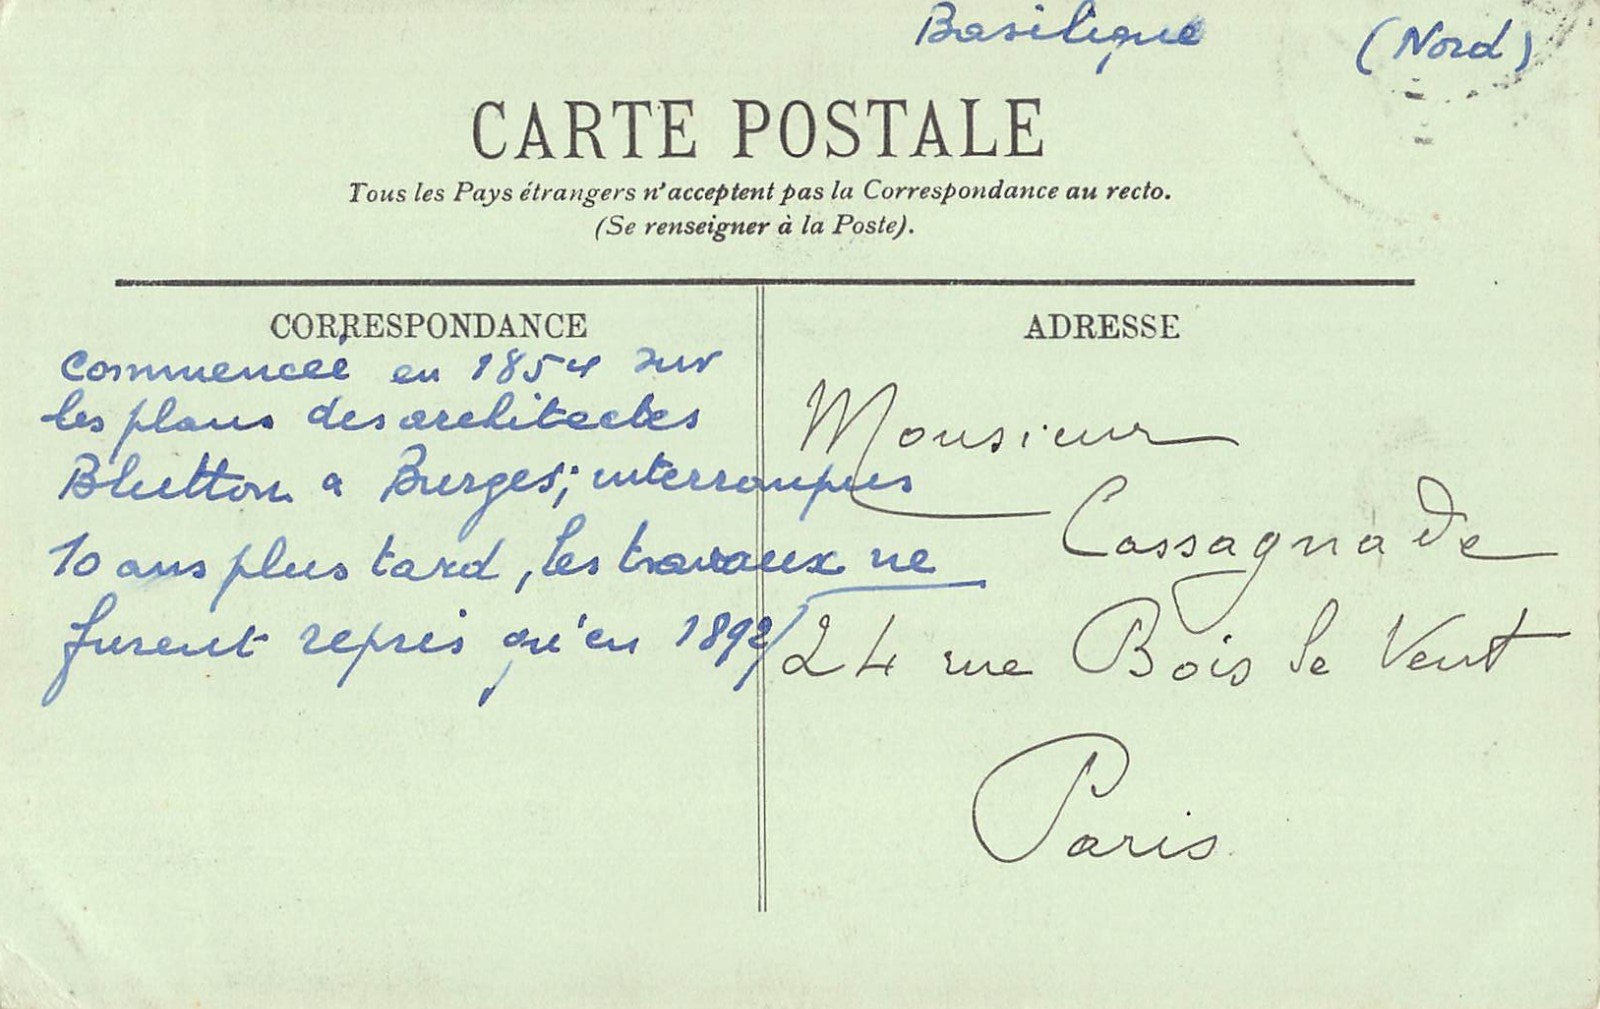 Basilique (Nord)
CARTE POSTALE
Tous les Pays étrangers n'acceptent pas la Correspondance au recto.
(Se renseigner à la Poste).
CORRESPONDANCE
commencée en 1854 sur
les plans des architectes
Blutton a Burges; interrompus
10 ans plus tard, les travaux ne
furent repris qu'en 1892/
ADRESSE
Monsieur
Cassagnade
24 rue Bois le Vent
Paris